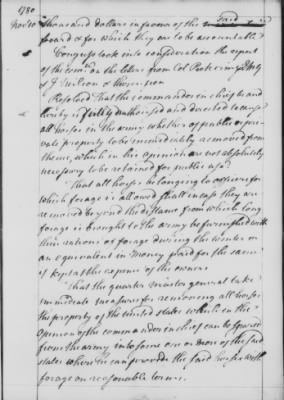 1780
Nov 10
thousand dollars in favor of the said
board & for which they are to be accountable
Congress took into consideration the report
of the comee on the letters from Col Pickering
& J Wilson &
Resolved That the commander in chief be and
hereby is fully authorised and directed to cause
all horses in the army whether of public or pri-
vate property to be immediately removed from
thence, which in his opinion are not absolutely
necessary to be retained for public use
That all horses belonging to officers for
which forage is allowed shall in case they are
removed beyond the distance from which long
forage is brought to the army be furnished with
their rations of forage during the winter or
an equivalent in money paid for the same
if kept at the expence of the owner
That the quarter master general take
immediate measures for removing all horses
the property of the united states which in the
opinion of the commander in chief can be spared
from the army into some one or more of the said
states where he can provide the said horses with
forage on reasonable terms.